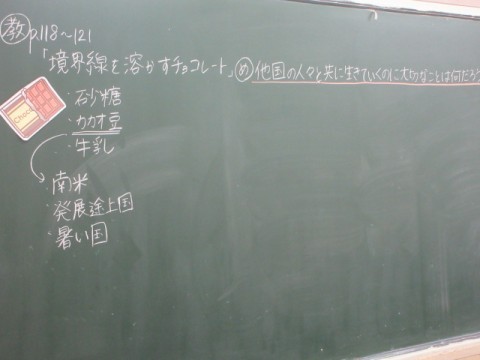 教 p.118~121
「境界線を溶かすチョコレート」 め 他国の人々と共に生きていくのに大切なことは何だろう
・砂糖
・カカオ豆
・牛乳
・南米
・発展途上国
・暑い国